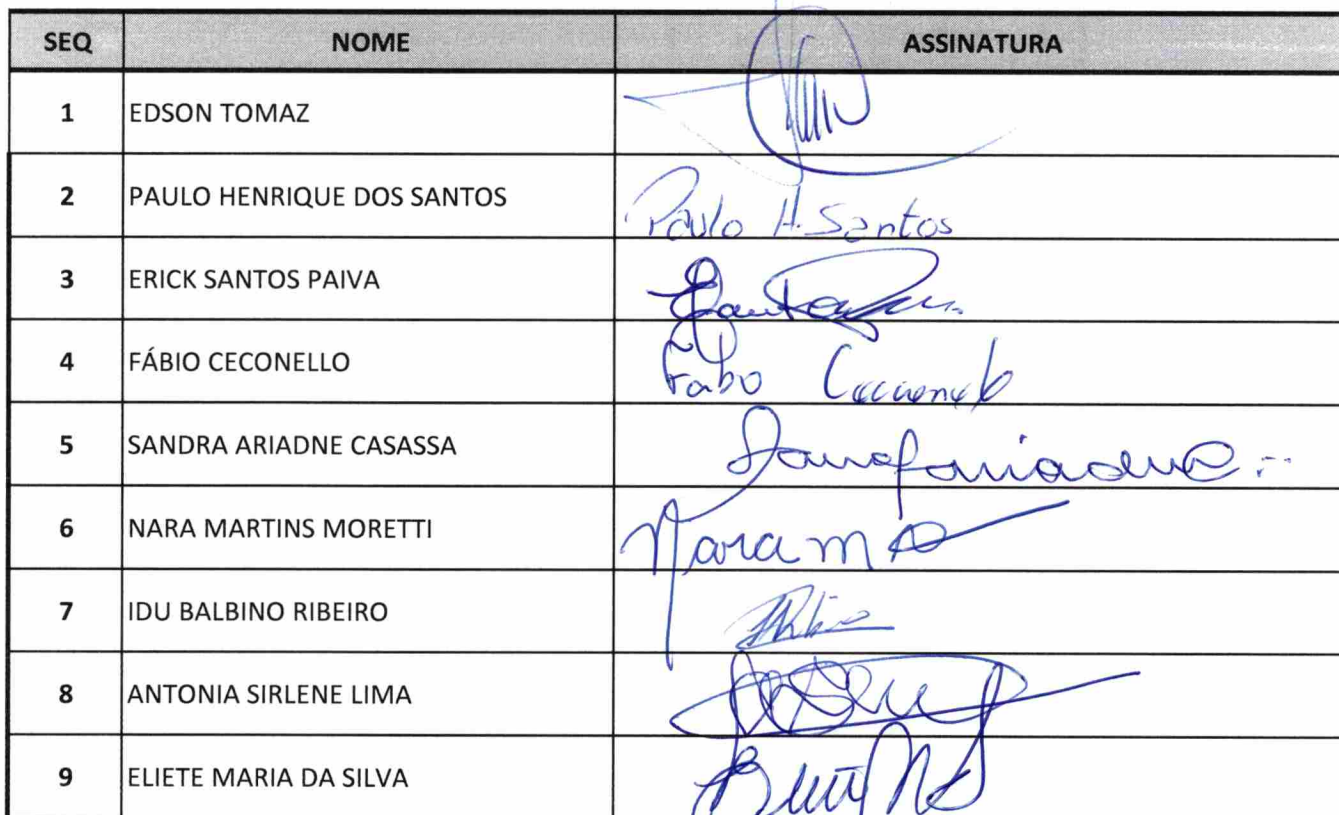 SEQ NOME ASSINATURA
1 EDSON TOMAZ
2 PAULO HENRIQUE DOS SANTOS Paulo H. Santos
3 ERICK SANTOS PAIVA
4 FÁBIO CECONELLO
5 SANDRA ARIADNE CASASSA
6 NARA MARTINS MORETTI Nara m
7 IDU BALBINO RIBEIRO
8 ANTONIA SIRLENE LIMA
9 ELIETE MARIA DA SILVA